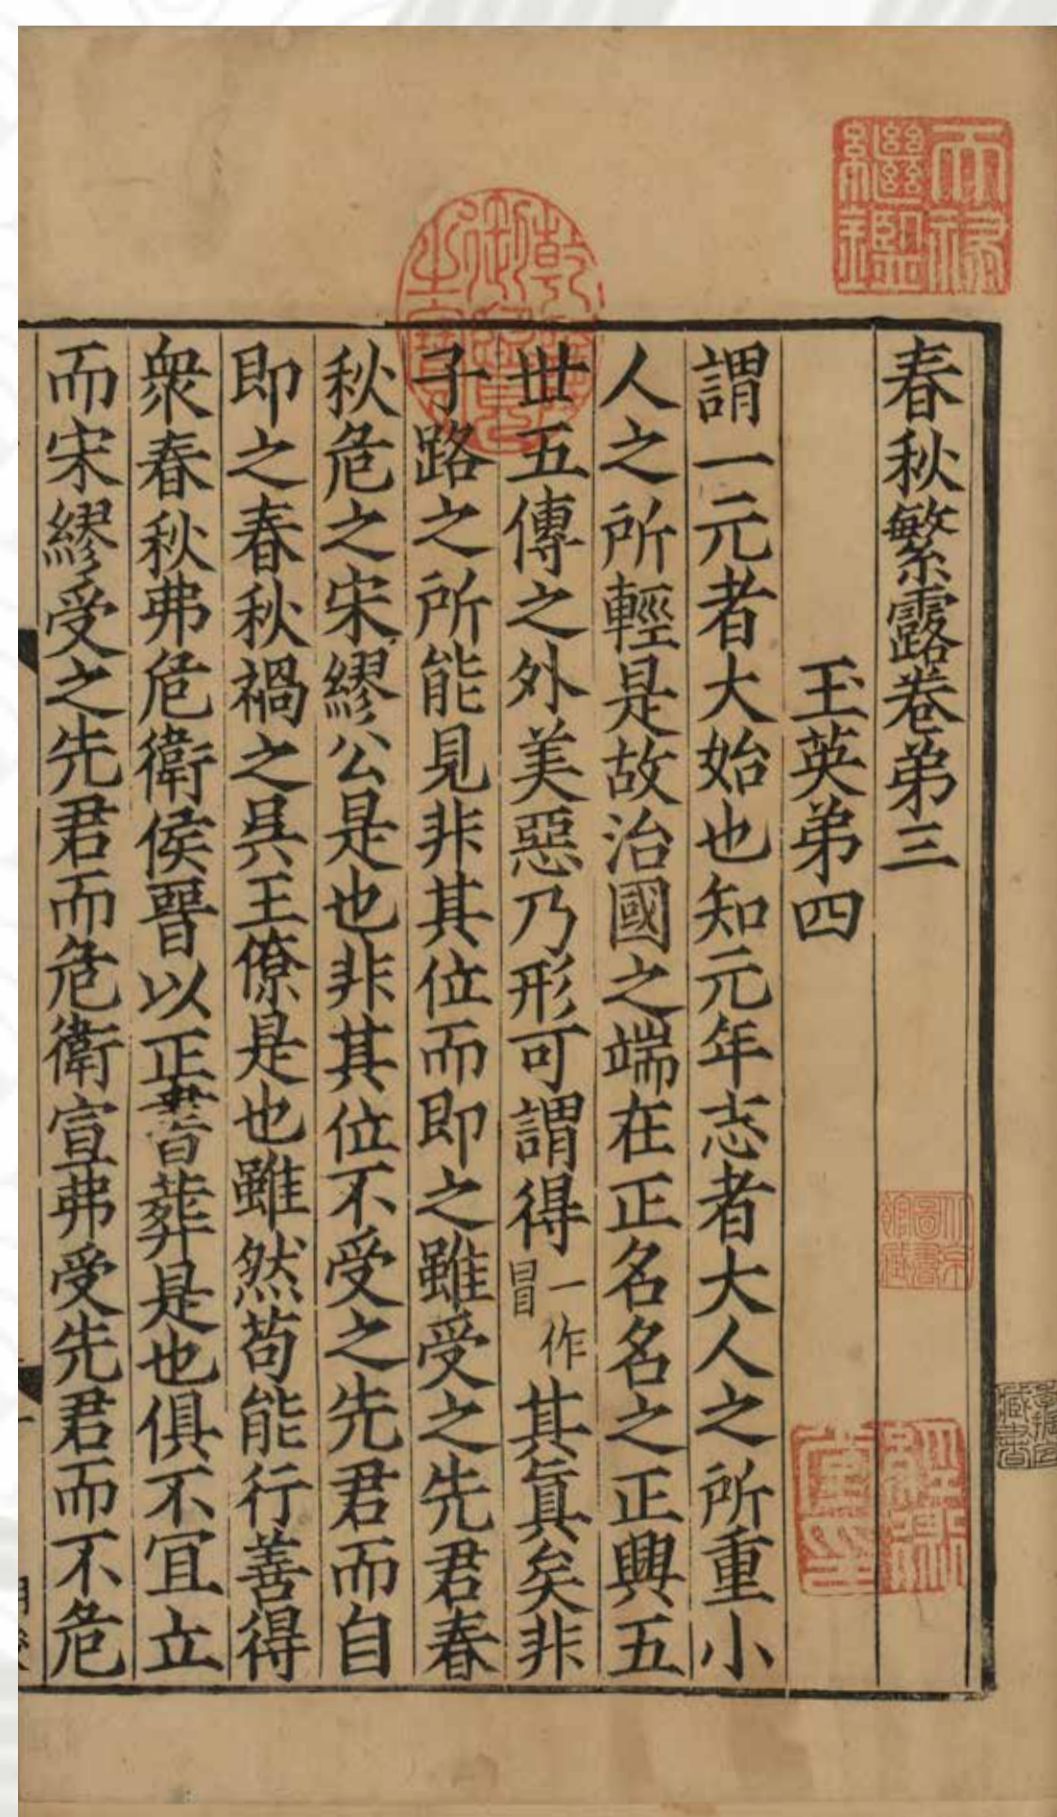 春秋繁露卷弟三
王英弟四
謂一元者大始也知元年志者大人之所重小
人之所輕是故治國之端在正名名之正興五
世五傳之外美惡乃形可謂得一作冒其眞矣非
子路之所能見非其位而即之雖受之先君春
秋危之宋繆公是也非其位不受之先君而自
即之春秋禍之吳王僚是也雖然苟能行善得
衆春秋弗危衛侯晉以正書葬是也俱不宜立
而宋繆受之先君而危衛宣弗受先君而不危
天祿繼鑑
乾隆御覽之寶
北京圖書館藏